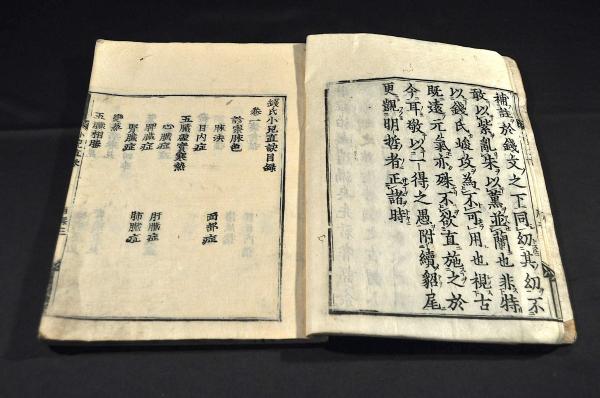 補註於錢文之下同幼其幼不
敢以紫亂朱以薰並蘭也非特
以錢氏峻攻為不可用也視古
既遠元氣亦殊不欲直施之於
今耳敬以一得之愚附續貂尾
更觀明哲者正諸時
錢氏小兒直訣目錄
卷一
診察脉色
脉法 面部症
目內症
五臟虛實寒熱
心臟症 肝臟症
脾臟症 肺臟症
腎臟症
變蒸
五臟相勝